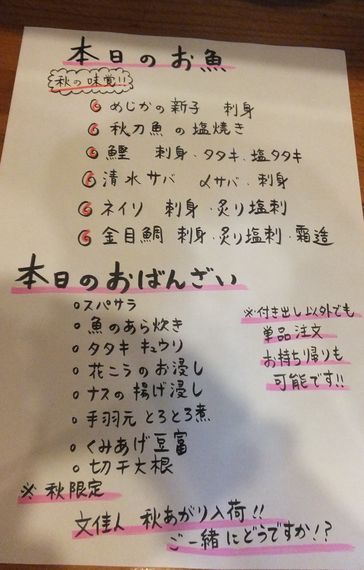 本日のお魚
秋の味覚!!
めじかの新子 刺身
秋刀魚の塩焼き
鰹 刺身・タタキ・塩タタキ
清水サバ 〆サバ・刺身
ネイリ 刺身・炙り塩刺
金目鯛 刺身・炙り塩刺・霜造
本日のおばんざい
○スパサラ
○魚のあら炊き
○タタキキュウリ
○花ニラのお浸し
○ナスの揚げ浸し
○手羽元とろとろ煮
○くみあげ豆富
○切干大根
※付き出し以外でも
単品注文
お持ち帰りも
可能です!!
※秋限定
文佳人 秋あがり入荷!!
ご一緒にどうですか!?